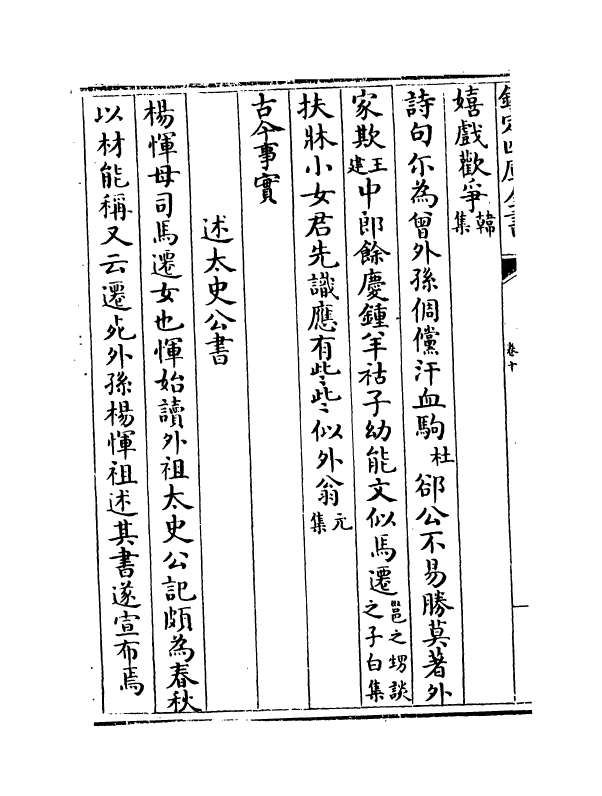 欽定四庫全書
卷十
嬉戲歡爭韓集
詩句尔為曾外孫倜儻汗血駒杜郤公不易勝莫著外
家欺王建中郎餘慶鍾羊祜子幼能文似馬遷邕之甥談之子白集
扶牀小女君先識應有些些似外翁元集
古今事實
述太史公書
楊惲母司馬遷女也惲始讀外祖太史公記頗為春秋
以材能稱又云遷死外孫楊惲祖述其書遂宣布焉